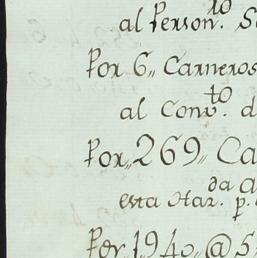 al Person.ro S
Por 6,, Carneros
al Conv.to d
Por,, 269,, Ca
esta Haz.da a p.
Por 1,940,, @ S